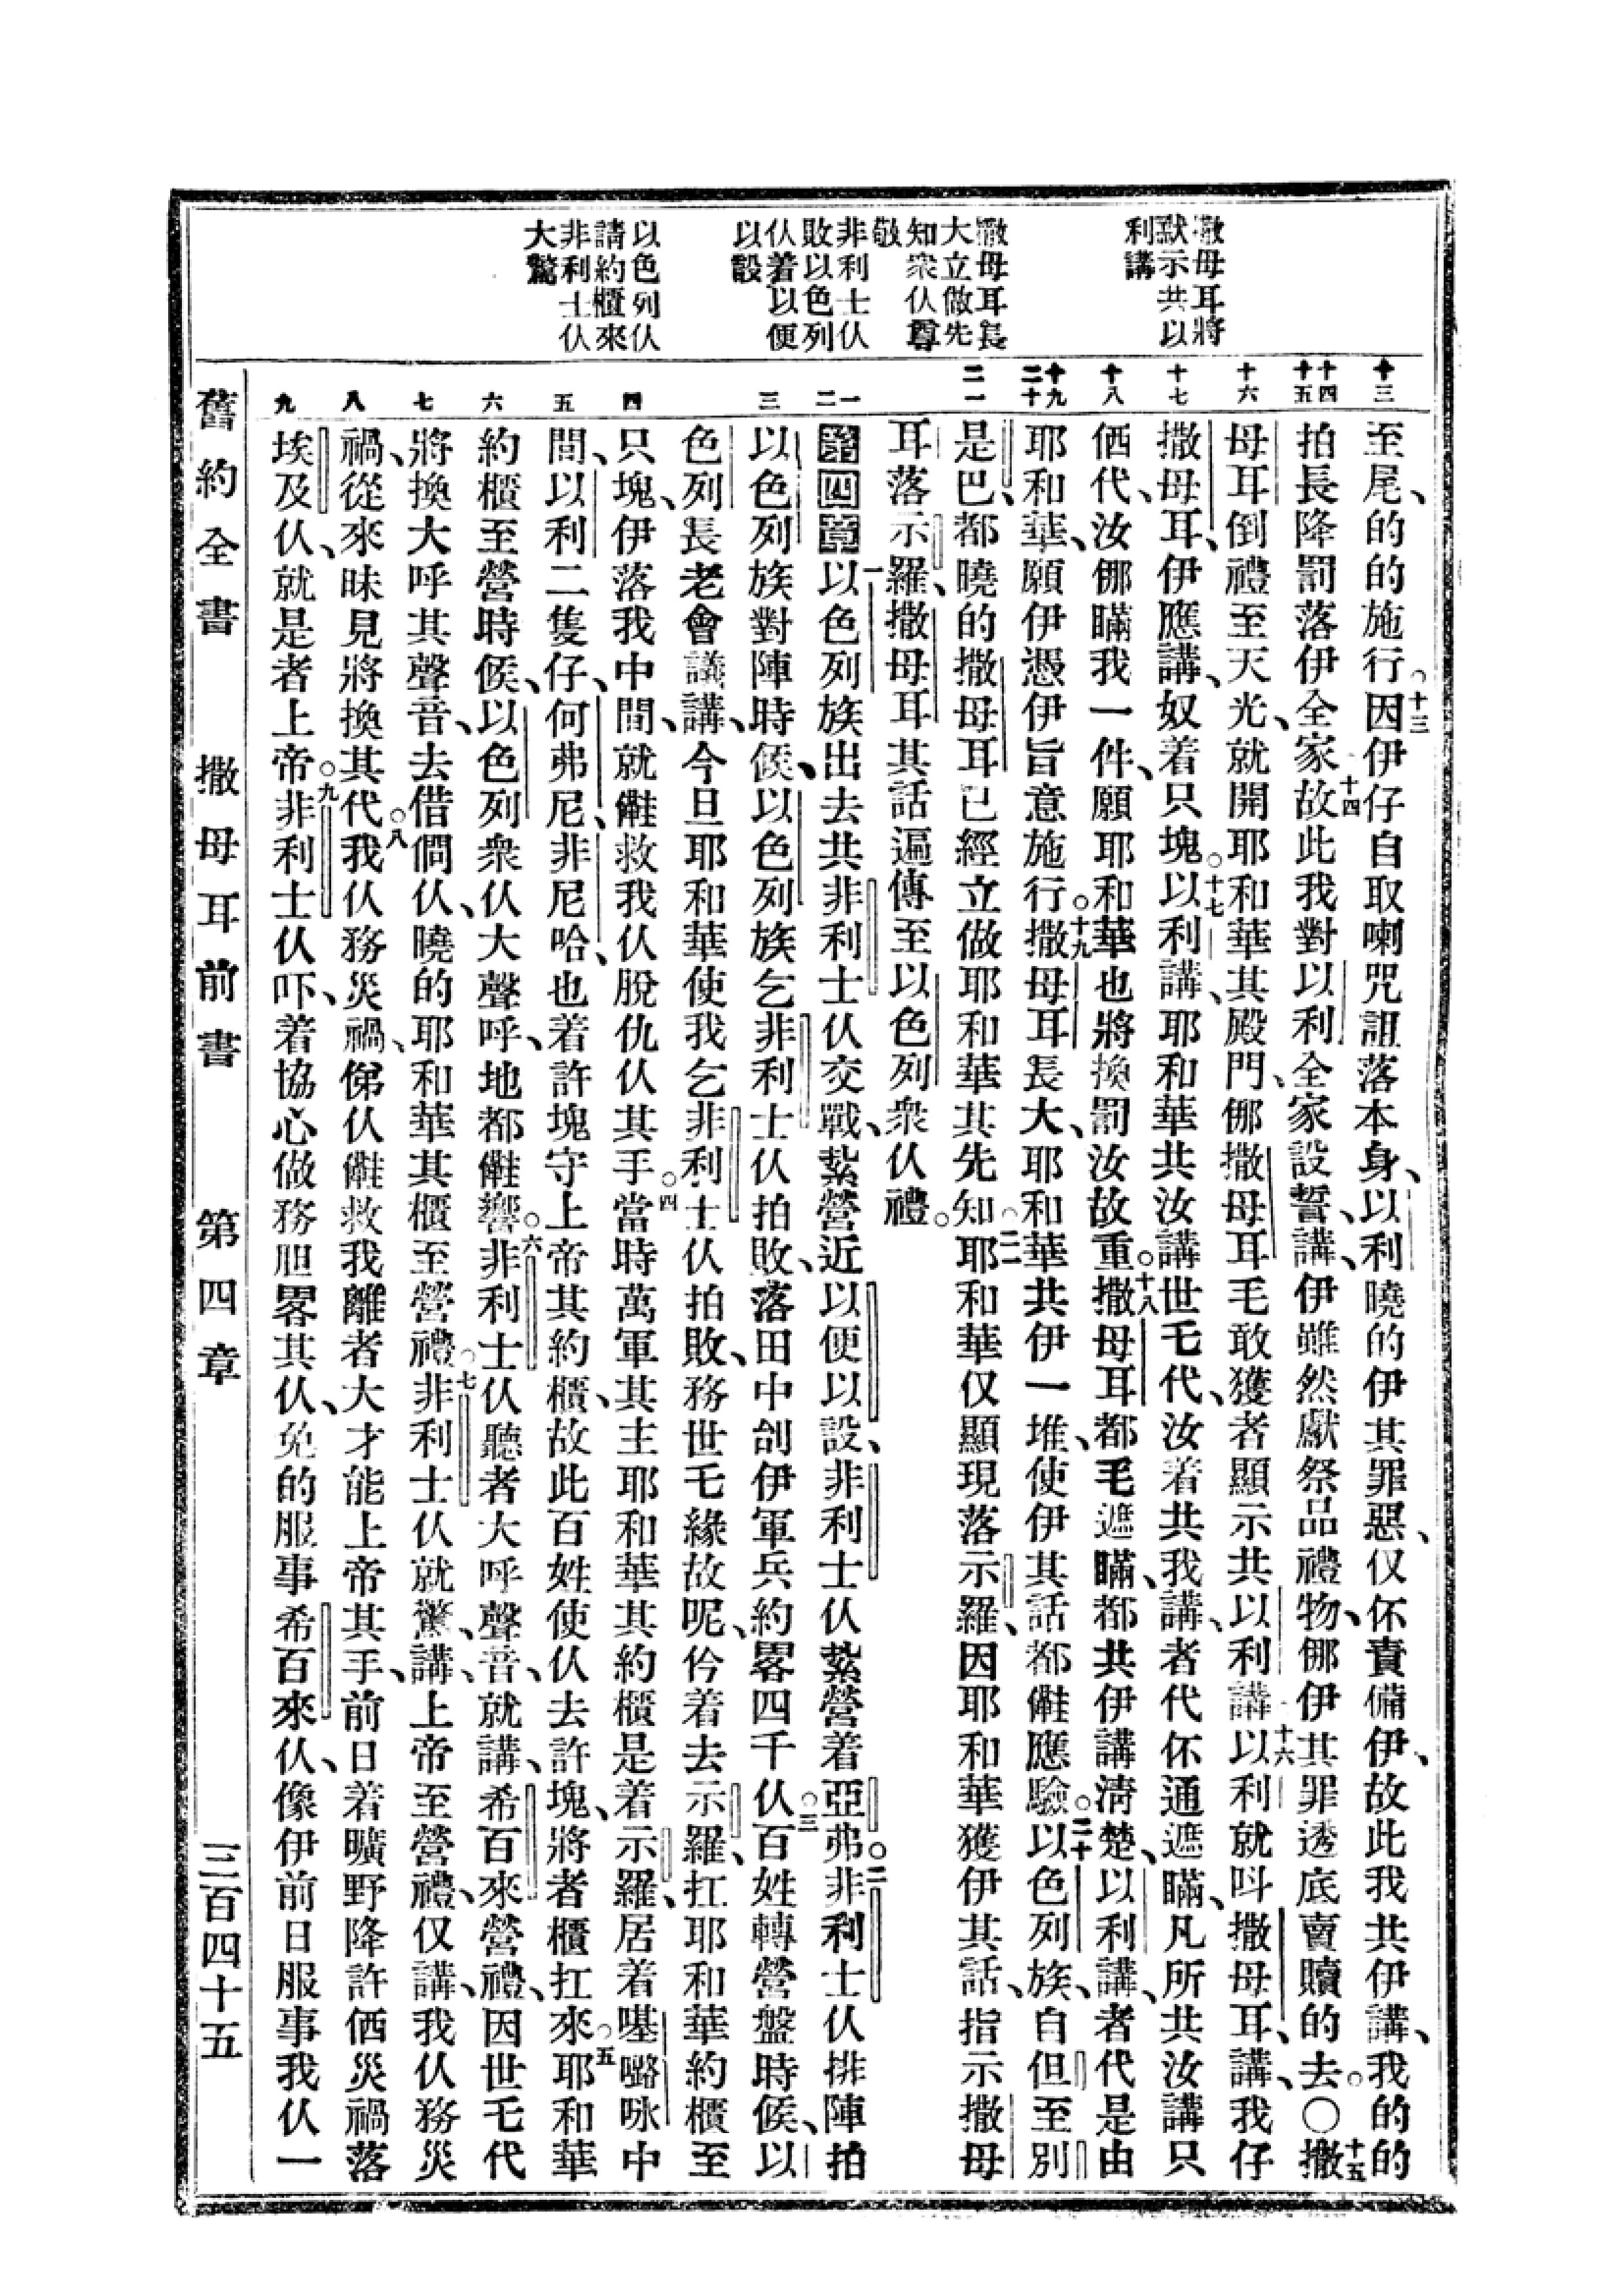 撒母耳將
默示共以
利講
撒母耳長
大立做先
知衆仈尊
敬
非利士仈
敗以色列
仈着以便
以設
以色列仈
請約櫃來
非利士仈
大驚
十三
十四
十五
十六
十七
十八
十九
二十
二一
一
二
三
四
五
六
七
八
九
至尾、的的施行。十三因伊仔自取喇咒詛落本身、以利曉的伊其罪惡、仅伓責備伊、故此我共伊講、我的的
拍長降罰落伊全家、十四故此我對以利全家設誓、講、伊雖然獻祭品禮物、㑚伊其罪透底賣贖的去。〇十五撒
母耳倒禮至天光、就開耶和華其殿門、㑚撒母耳毛敢獲者顯示共以利講、十六以利就呌撒母耳、講、我仔
撒母耳、伊應講、奴着只塊。十七以利講、耶和華共汝講世乇代、汝着共我講、者代伓通遮瞞、凡所共汝講只
代、汝㑚瞞我一件、願耶和華也將換罰汝故重。十八撒母耳都毛遮瞞、都共伊講淸楚、以利講、者代是由
耶和華、願伊憑伊旨意施行。十九撒母耳長大、耶和華共伊一堆、使伊其話都㑷應驗。二十以色列族、自但至別
是巴、都曉的撒母耳已經立做耶和華其先知。二一耶和華仅顯現落示羅、因耶和華獲伊其話、指示撒母
耳落示羅、撒母耳其話遍傳至以色列衆仈禮。
第四章一以色列族出去共非利士仈交戰、紮營近以便以設、非利士仈紮營着亞弗。二非利士仈排陣拍
以色列族對陣時候、以色列族乞非利士仈拍敗、落田中刣伊軍兵、約畧四千仈。三百姓轉營盤時候、以
色列長老會議講、今旦耶和華使我乞非利士仈拍敗、務世乇緣故呢、仱着去示羅、扛耶和華約櫃至
只塊、伊落我中間、就㑷救我仈脫仇仈其手。四當時萬軍其主耶和華其約櫃是着示羅、居着𡅏𡀔㖡中
間、以利二隻仔、何弗尼、非尼哈、也着許塊守上帝其約櫃、故此百姓使仈去許塊、將者櫃扛來。五耶和華
約櫃至營時候、以色列衆仈大聲呼、地都㑷響。六非利士仈聽者大呼聲音、就講、希百來營禮、因世乇代
將換大呼其聲音、去借問仈、曉的耶和華其櫃至營禮。七非利士仈就驚、講、上帝至營禮、仅講、我仈務災
禍、從來昧見將換其代。八我仈務災禍、俤仈㑷救我離者大才能上帝其手、前日着曠野降許價災禍落
埃及仈、就是者上帝。九非利士仈吓、着協心做務胆畧其仈、免的服事希百來仈、像伊前日服事我仈一
舊約全書　撒母耳前書　第四章　三百四十五